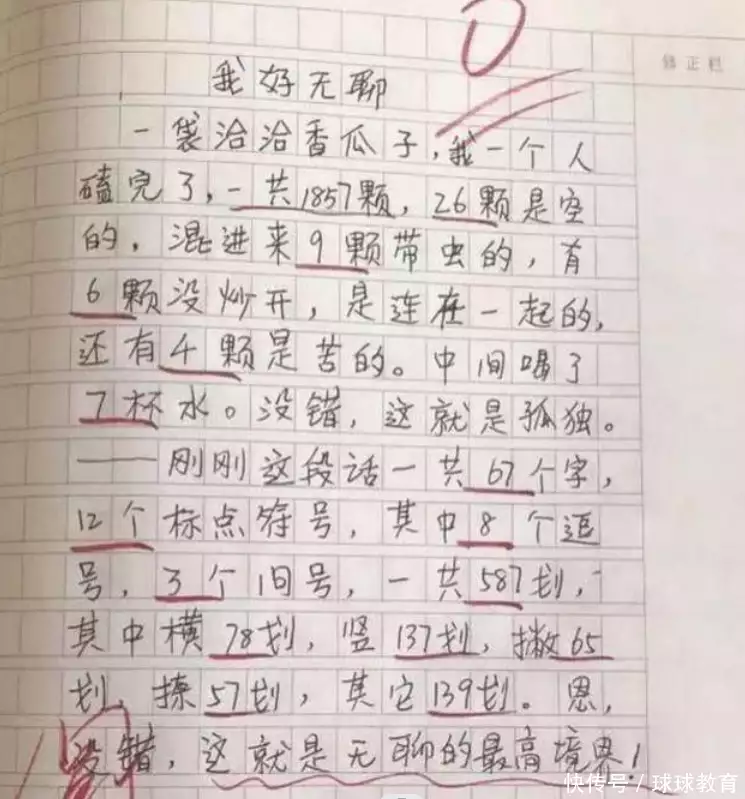 修正栏
我好无聊
一袋洽洽香瓜子,我一个人
磕完了,一共1857颗,26颗是空
的,混进来9颗带虫的,有
6颗没炒开,是连在一起的,
还有4颗是苦的。中间喝了
7杯水。没错,这就是孤独。
——刚刚这段话一共67个字,
12个标点符号,其中8个逗
号,3个句号,一共587划,
其中横78划,竖137划,撇65
划,捺57划,其它139划。恩,
没错,这就是无聊的最高境界!
快传号/球球教育